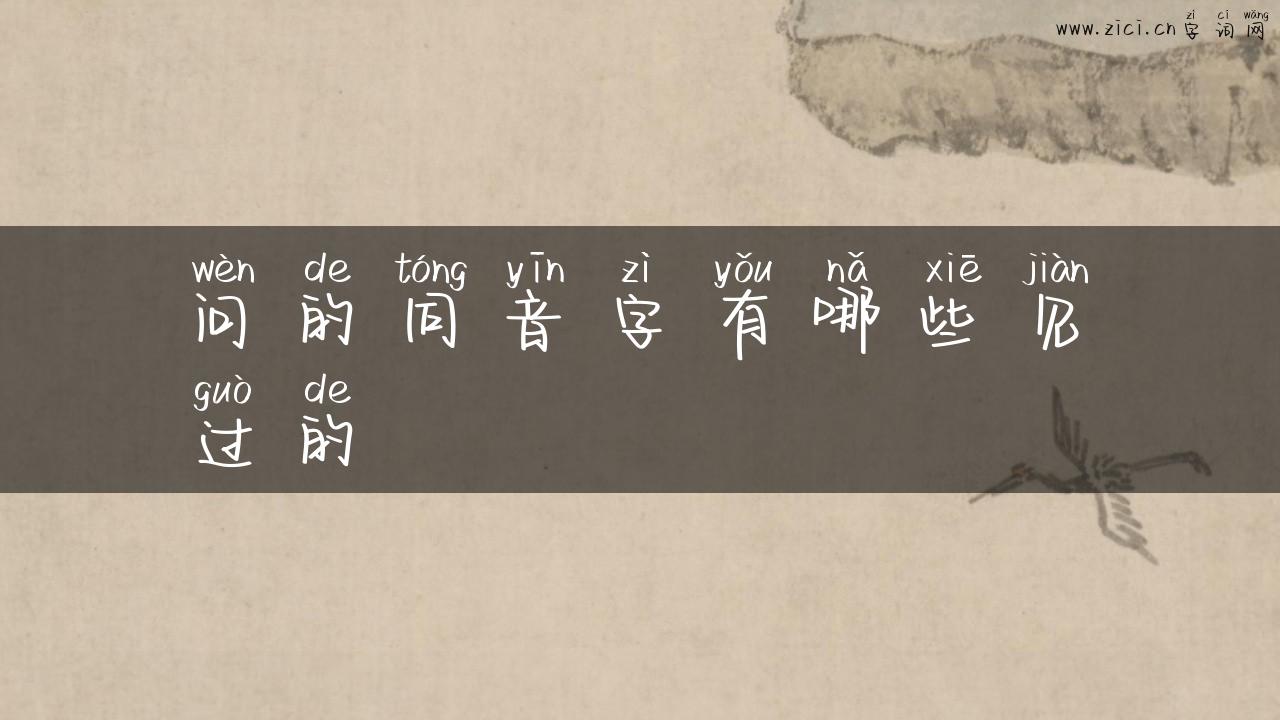 zì cí wǎng
www.zici.cn 字词网
wèn de tóng yīn zì yǒu nǎ xiē jiàn
问的同音字有哪些见
guò de
过的